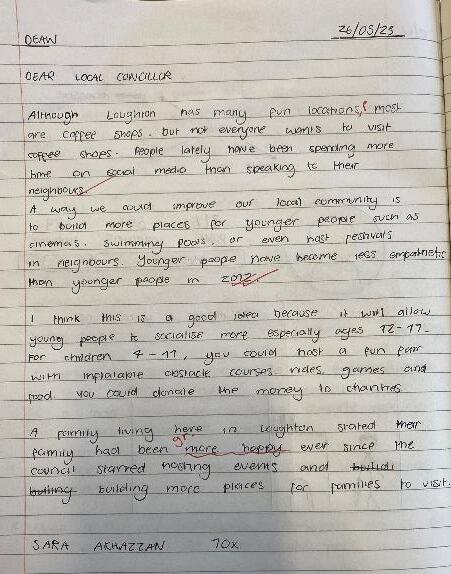 DEAW
26/05/23
DEAR LOCAL CONCILLOR
Although Loughton has many fun locations, most
are coffee shops. but not everyone wants to visit
coffee shops. People lately have been spending more
time on social media than speaking to their
neighbours.
A way we could improve our local community is
to build more places for younger people such as
cinemas. Swimming pools. or even host festivals
in neighbours. Younger people have become less empathetic
than younger people in 2012.
I think this is a good idea because it will allow
young people to socialise more especially ages 12-17.
For children 4-11, you could host a fun fair
with inflatable obstacle courses, rides, games and
food. you could donate the money to charities.
A family living here in Loughton stated their
gr
family had been more happy ever since the
council started hosting events and
building more places for families to visit.
SARA AKHAZZAN 10x